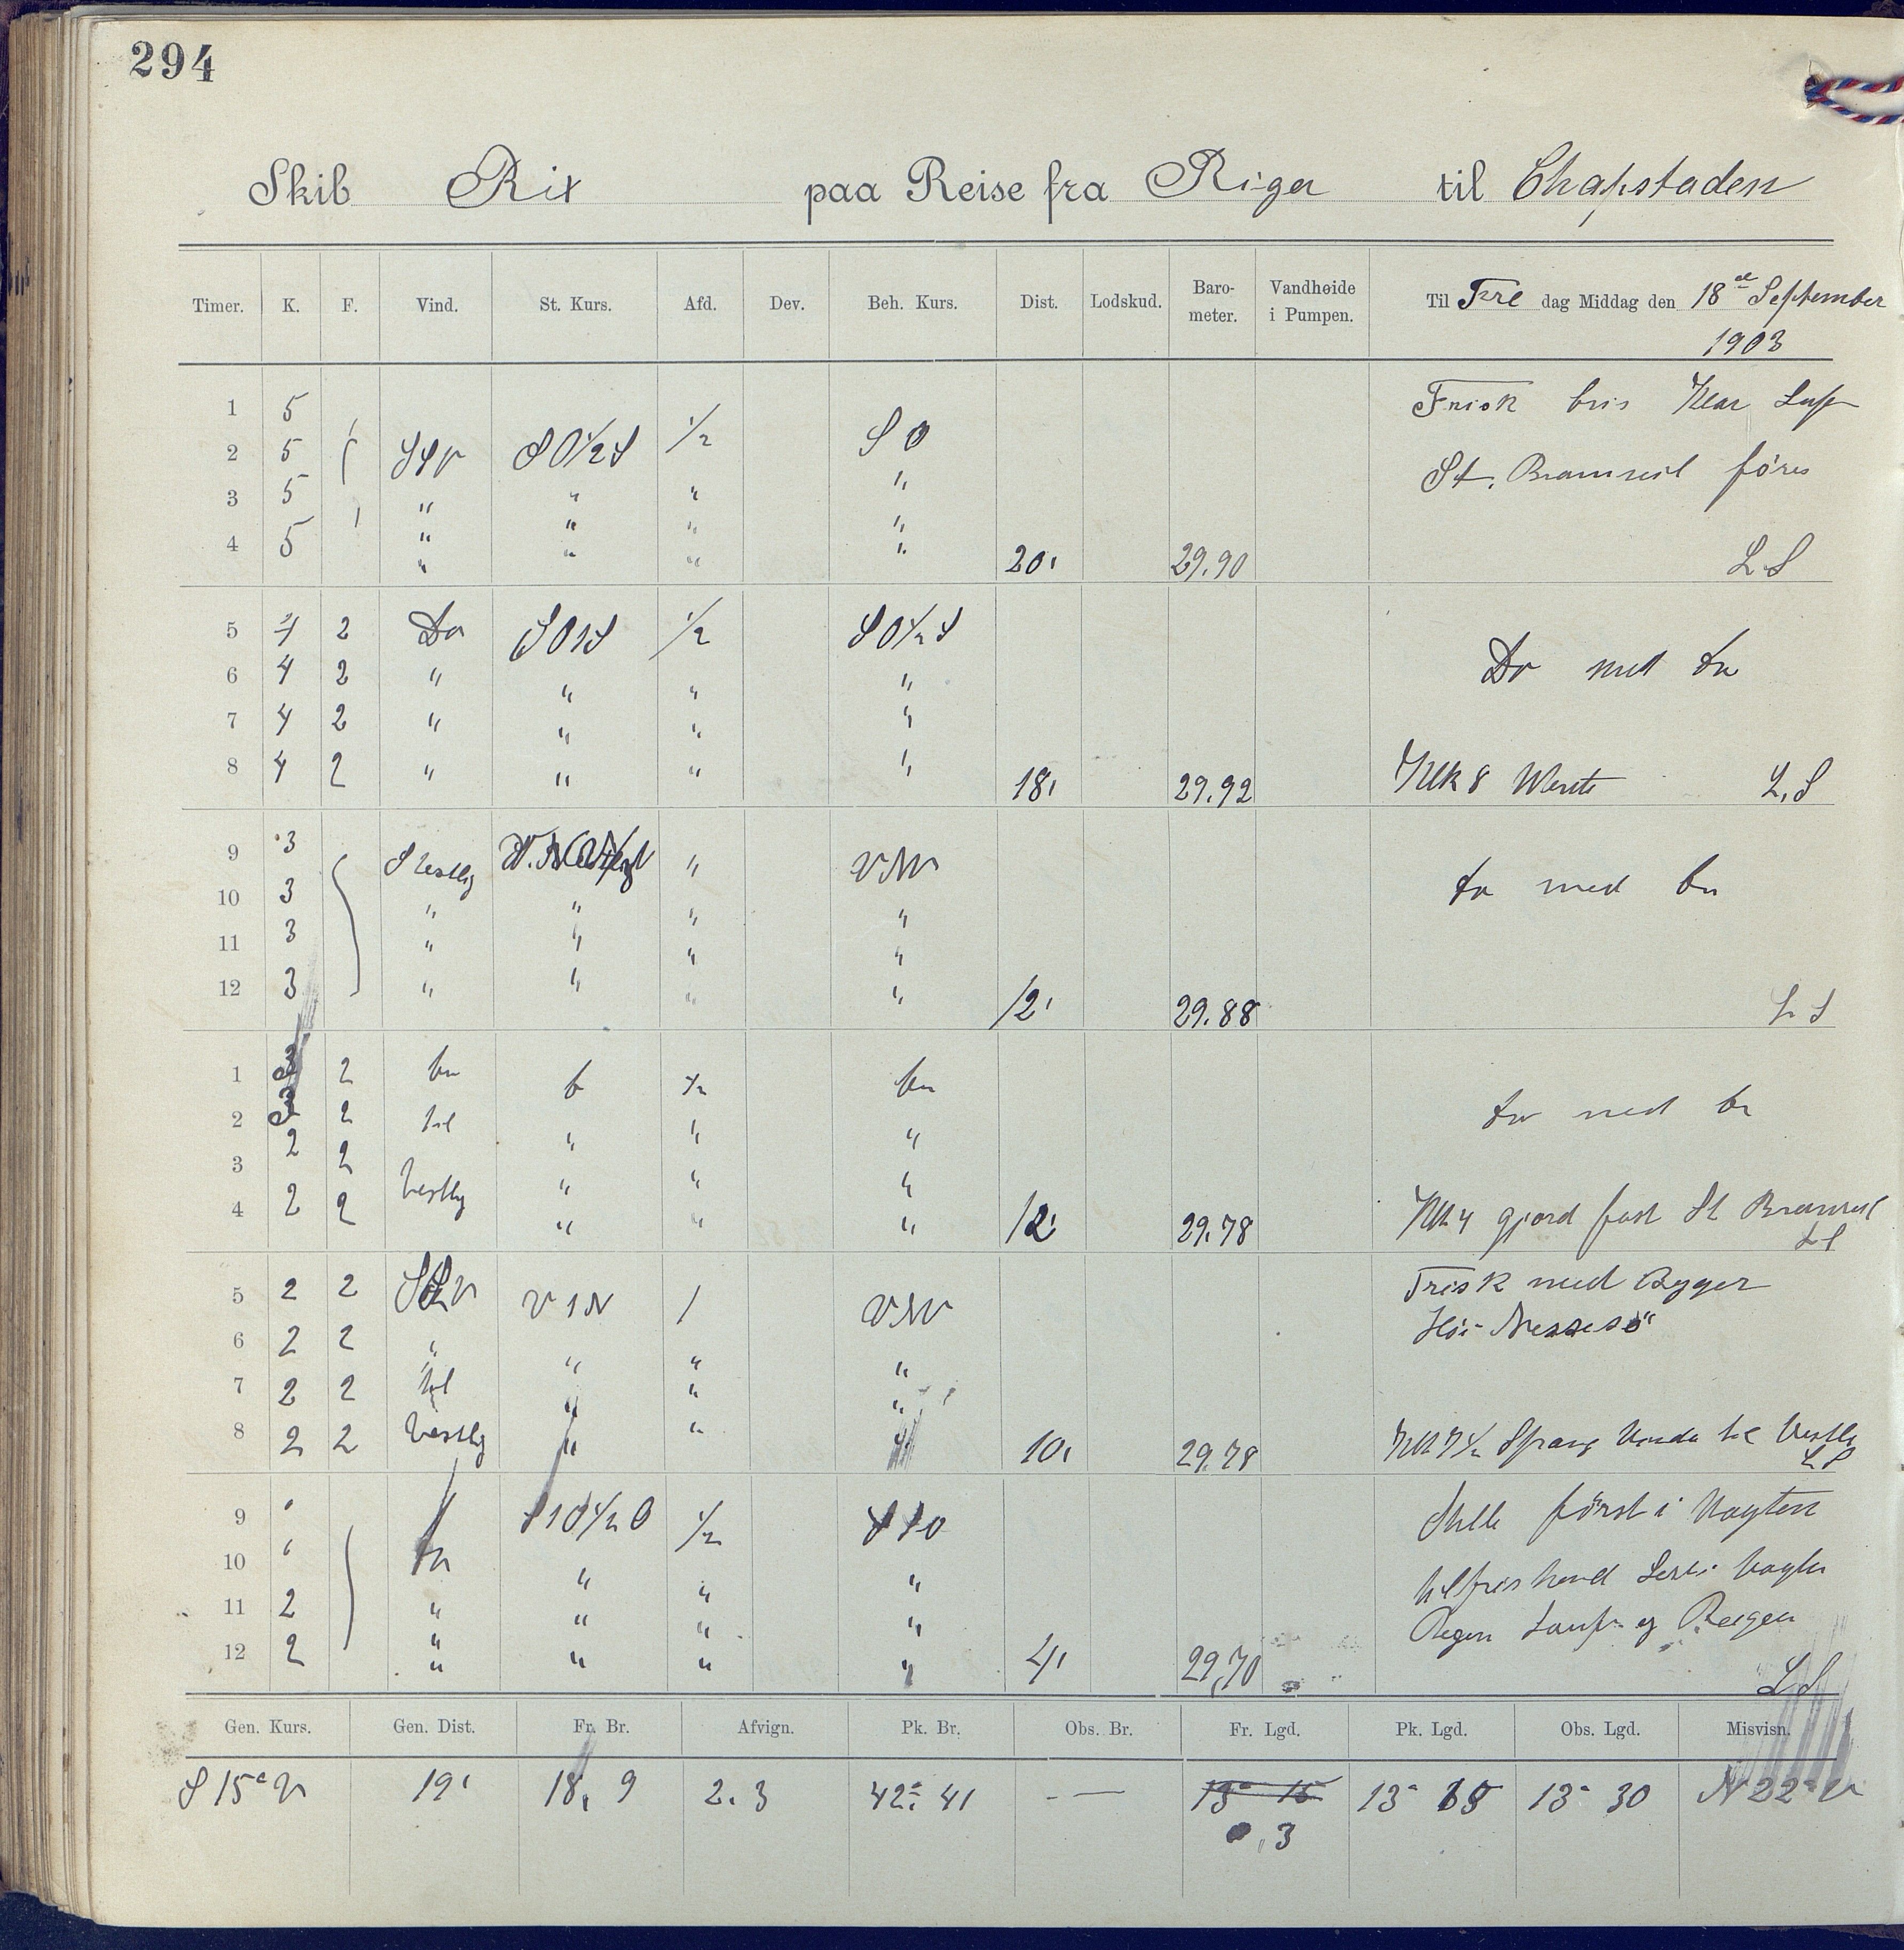 294
Skib Rix paa Reise fra Riga til Chapstaden
Timer. K. F. Vind. St. Kurs. Afd. Dev. Beh. Kurs. Dist. Lodskud. Baro-meter. Vandhøide i Pumpen. Til Fre dag Middag den 18de September
1903
1 5 Frisk bris Klar Luft
2 5 SSV SO½S ½ SO
3 5 " " " " St. Bramseil föres
4 5 " " " " 20' 29.90 LS
5 4 2 Do SO1S ½ SO½S
6 4 2 " " " " Do med do
7 4 2 " " " "
8 4 2 " " " " 18' 29.92 Klk 8 Vente L,S
9 3 S Vestlig " VNV
10 3 " " " " do med do
11 3 " " " "
12 3 " " " " 12' 29.88 LS
1 3 2 do do ½ do
2 3 2 til " " " do med do
3 2 2 Vestlig " " "
4 2 2 " " " 12' 29.78 Klk 4 gjord fast St Bramseil
LS
5 2 2 SSV V1N 1 VNV Frisk med Bygger
6 2 2 " " " " Høi Nessesö
7 2 2 til " " "
8 2 2 Vestlig " " " 10' 29.78 Klk 7½ Sprang Vinden til Vestlig
LS
9 do S1O½O ½ SSO Stille först i Vagten
10 " " "
11 2 " " " "
12 2 " " " " 4' 29.70 Regen
LS
Gen. Kurs. Gen. Dist. Fr. Br. Afvign. Pk. Br. Obs. Br. Fr. Lgd. Pk. Lgd. Obs. Lgd. Misvisn.
S 15° V 19' 18. 9 2. 3 42° 41 — 13° 15 13° 15 13° 30 N 22° V
. 3